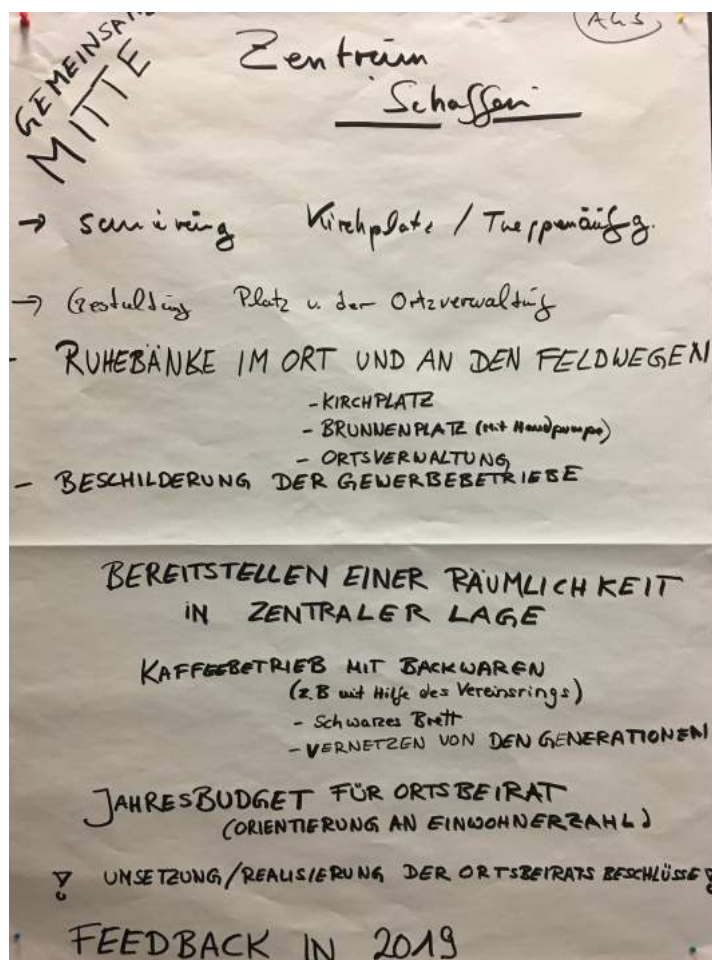 GEMEINSAME
MITTE
AG 3
Zentrum
Schaffen
→ Sanierung Kirchplatz / Treppenaufg.
→ Gestaltung Platz v. der Ortzverwaltung
- RUHEBÄNKE IM ORT UND AN DEN FELDWEGEN
- KIRCHPLATZ
- BRUNNENPLATZ (Mit Handpumpe)
- ORTSVERWALTUNG
- BESCHILDERUNG DER GEWERBEBETRIEBE
BEREITSTELLEN EINER RÄUMLICHKEIT
IN ZENTRALER LAGE
KAFFEEBETRIEB MIT BACKWAREN
(z.B mit Hilfe des Vereinsrings)
- Schwarzes Brett
- VERNETZEN VON DEN GENERATIONEN
JAHRESBUDGET FÜR ORTSBEIRAT
(ORIENTIERUNG AN EINWOHNERZAHL)
! UMSETZUNG/REALISIERUNG DER ORTSBEIRATS BESCHLÜSSE !
FEEDBACK IN 2019